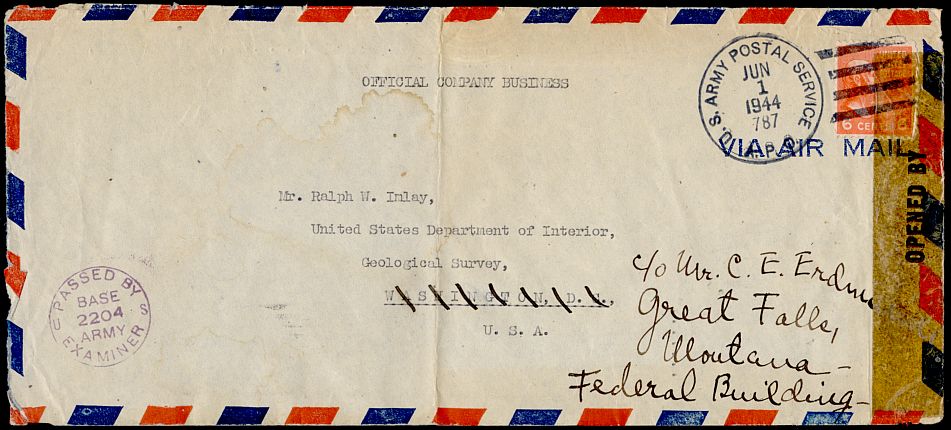 OFFICIAL COMPANY BUSINESS
U. S. ARMY POSTAL SERVICE
JUN
1
1944
787
A.P.O.
6 CENTS 6
VIA AIR MAIL
OPENED BY
Mr. Ralph W. Imlay,
United States Department of Interior,
Geological Survey,
WASHINGTON, D. C.,
U. S. A.
c/o Mr. C. E. Erdm
Great Falls,
Montana -
Federal Building -
PASSED BY
U S
BASE
2204
ARMY
EXAMINER